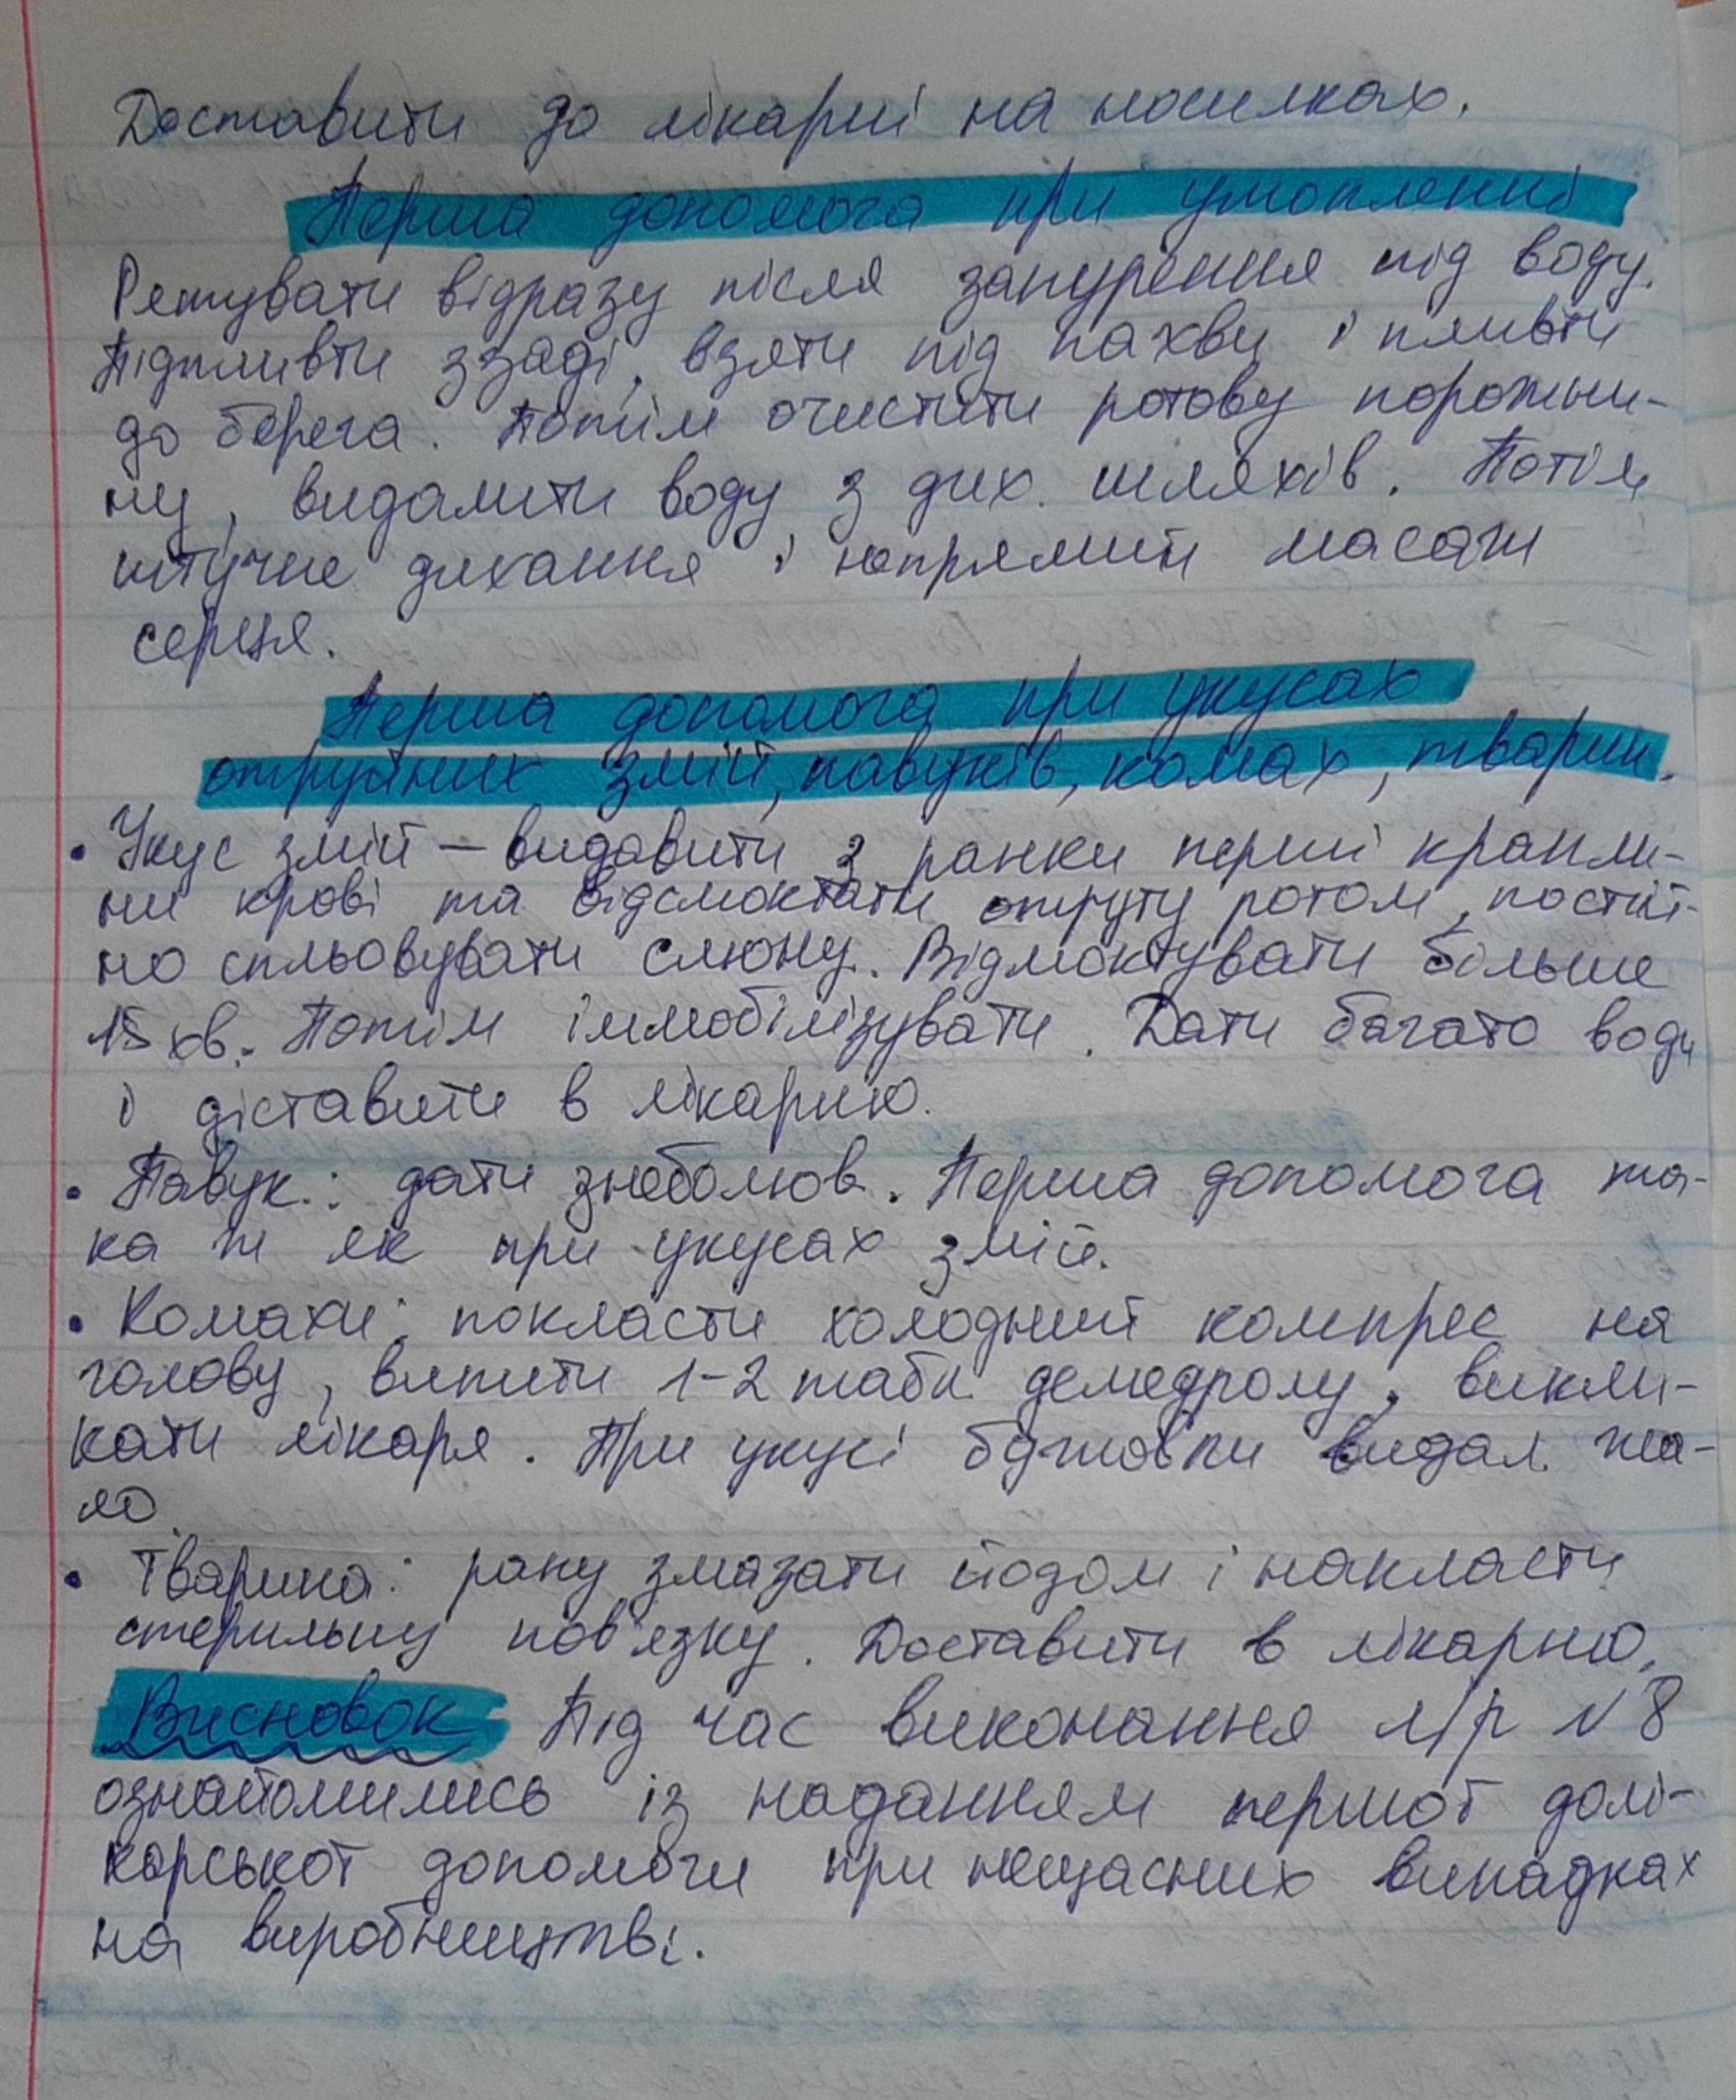 Доставити до лікарні на носилках.
Перша допомога при утопленні
Рятувати відразу після занурення під воду.
Підпливти ззаді, взяти під пахви і пливти
до берега. Потім очистити ротову порожни-
ну, видалити воду з дих. шляхів. Потім
штучне дихання і непрямий масаж
серця.
Перша допомога при укусах
отруйних змій, павуків, комах, тварин.
• Укус змій — видавити з ранки перші крапли-
ни крові та відсмоктати отруту ротом, постій-
но спльовувати слюну. Відмоктувати більше
15 хв. Потім іммобілізувати. Дати багато води
і діставити в лікарню.
• Павук.: дати знеболюв. Перша допомога та-
ка ж як при укусах змій.
• Комахи: покласти холодний компрес на
голову, випити 1-2 табл. демедролу, викли-
кати лікаря. При укусі бджоли видал. жа-
ло.
• Тварина: рану змазати йодом і накласти
стерильну пов'язку. Доставити в лікарню.
Висновок Під час виконання л/р №8
ознайомились із наданням першої долі-
карської допомоги при нещасних випадках
на виробництві.